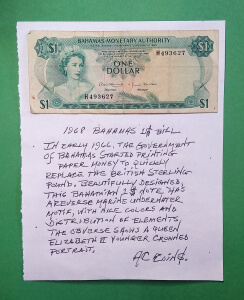 BAHAMAS MONETARY AUTHORITY
$1
$1
ONE
DOLLAR
H493627
H493627
$1
$1
1968 BAHAMAS 1$ BILL
IN EARLY 1966, THE GOVERNMENT
OF BAHAMAS STARTED PRINTING
PAPER MONEY TO QUICKLY
REPLACE THE BRITISH STERLING
POUND. BEAUTIFULLY DESIGNED,
THIS BAHAMIAN 1$ NOTE, HAS
A REVERSE MARINE UNDERWATER
MOTIF, WITH NICE COLORS AND
DISTRIBUTION OF ELEMENTS,
THE OBVERSE SHOWS A QUEEN
ELIZABETH II YOUNGER CROWNED
PORTRAIT.